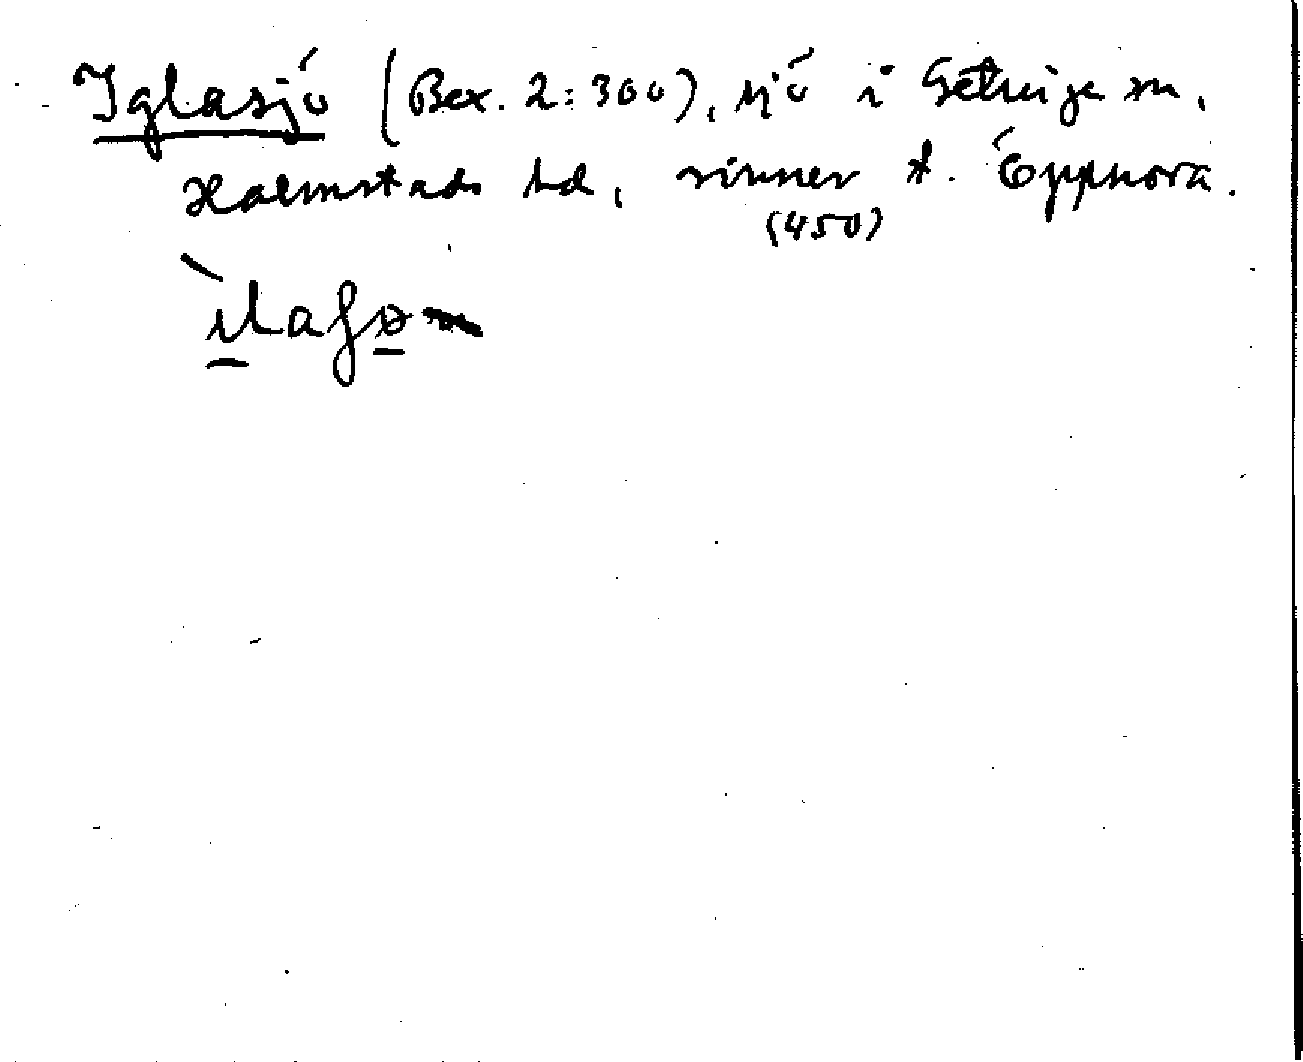 Iglasjö (Bex. 2:300), sjö i Getinge sn,
Halmstads hd, rinner t. Öppnora.
(450)